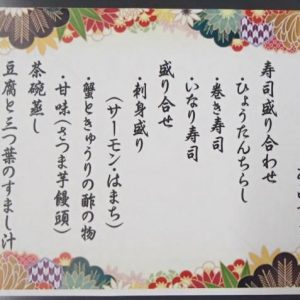 寿司盛り合わせ
・ひょうたんちらし
・巻き寿司
・いなり寿司
盛り合せ
・刺身盛り
（サーモン・はまち）
・蟹ときゅうりの酢の物
・甘味（さつま芋饅頭）
茶碗蒸し
豆腐と三つ葉のすまし汁